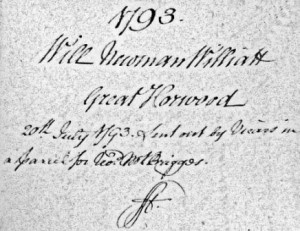 1793.
Will Newman Williatt
Great Horwood
20th July 1793. Sent out by Vicars in
a Parcel for Geo: Wm Brigges.